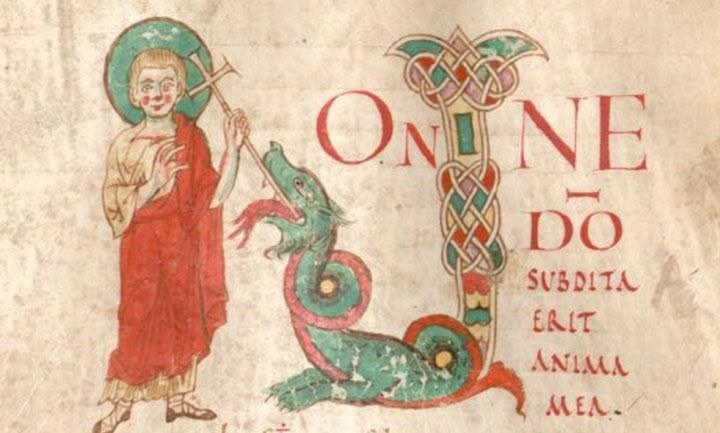 NONNE
DŌ
SUBDITA
ERIT
ANIMA
MEA.